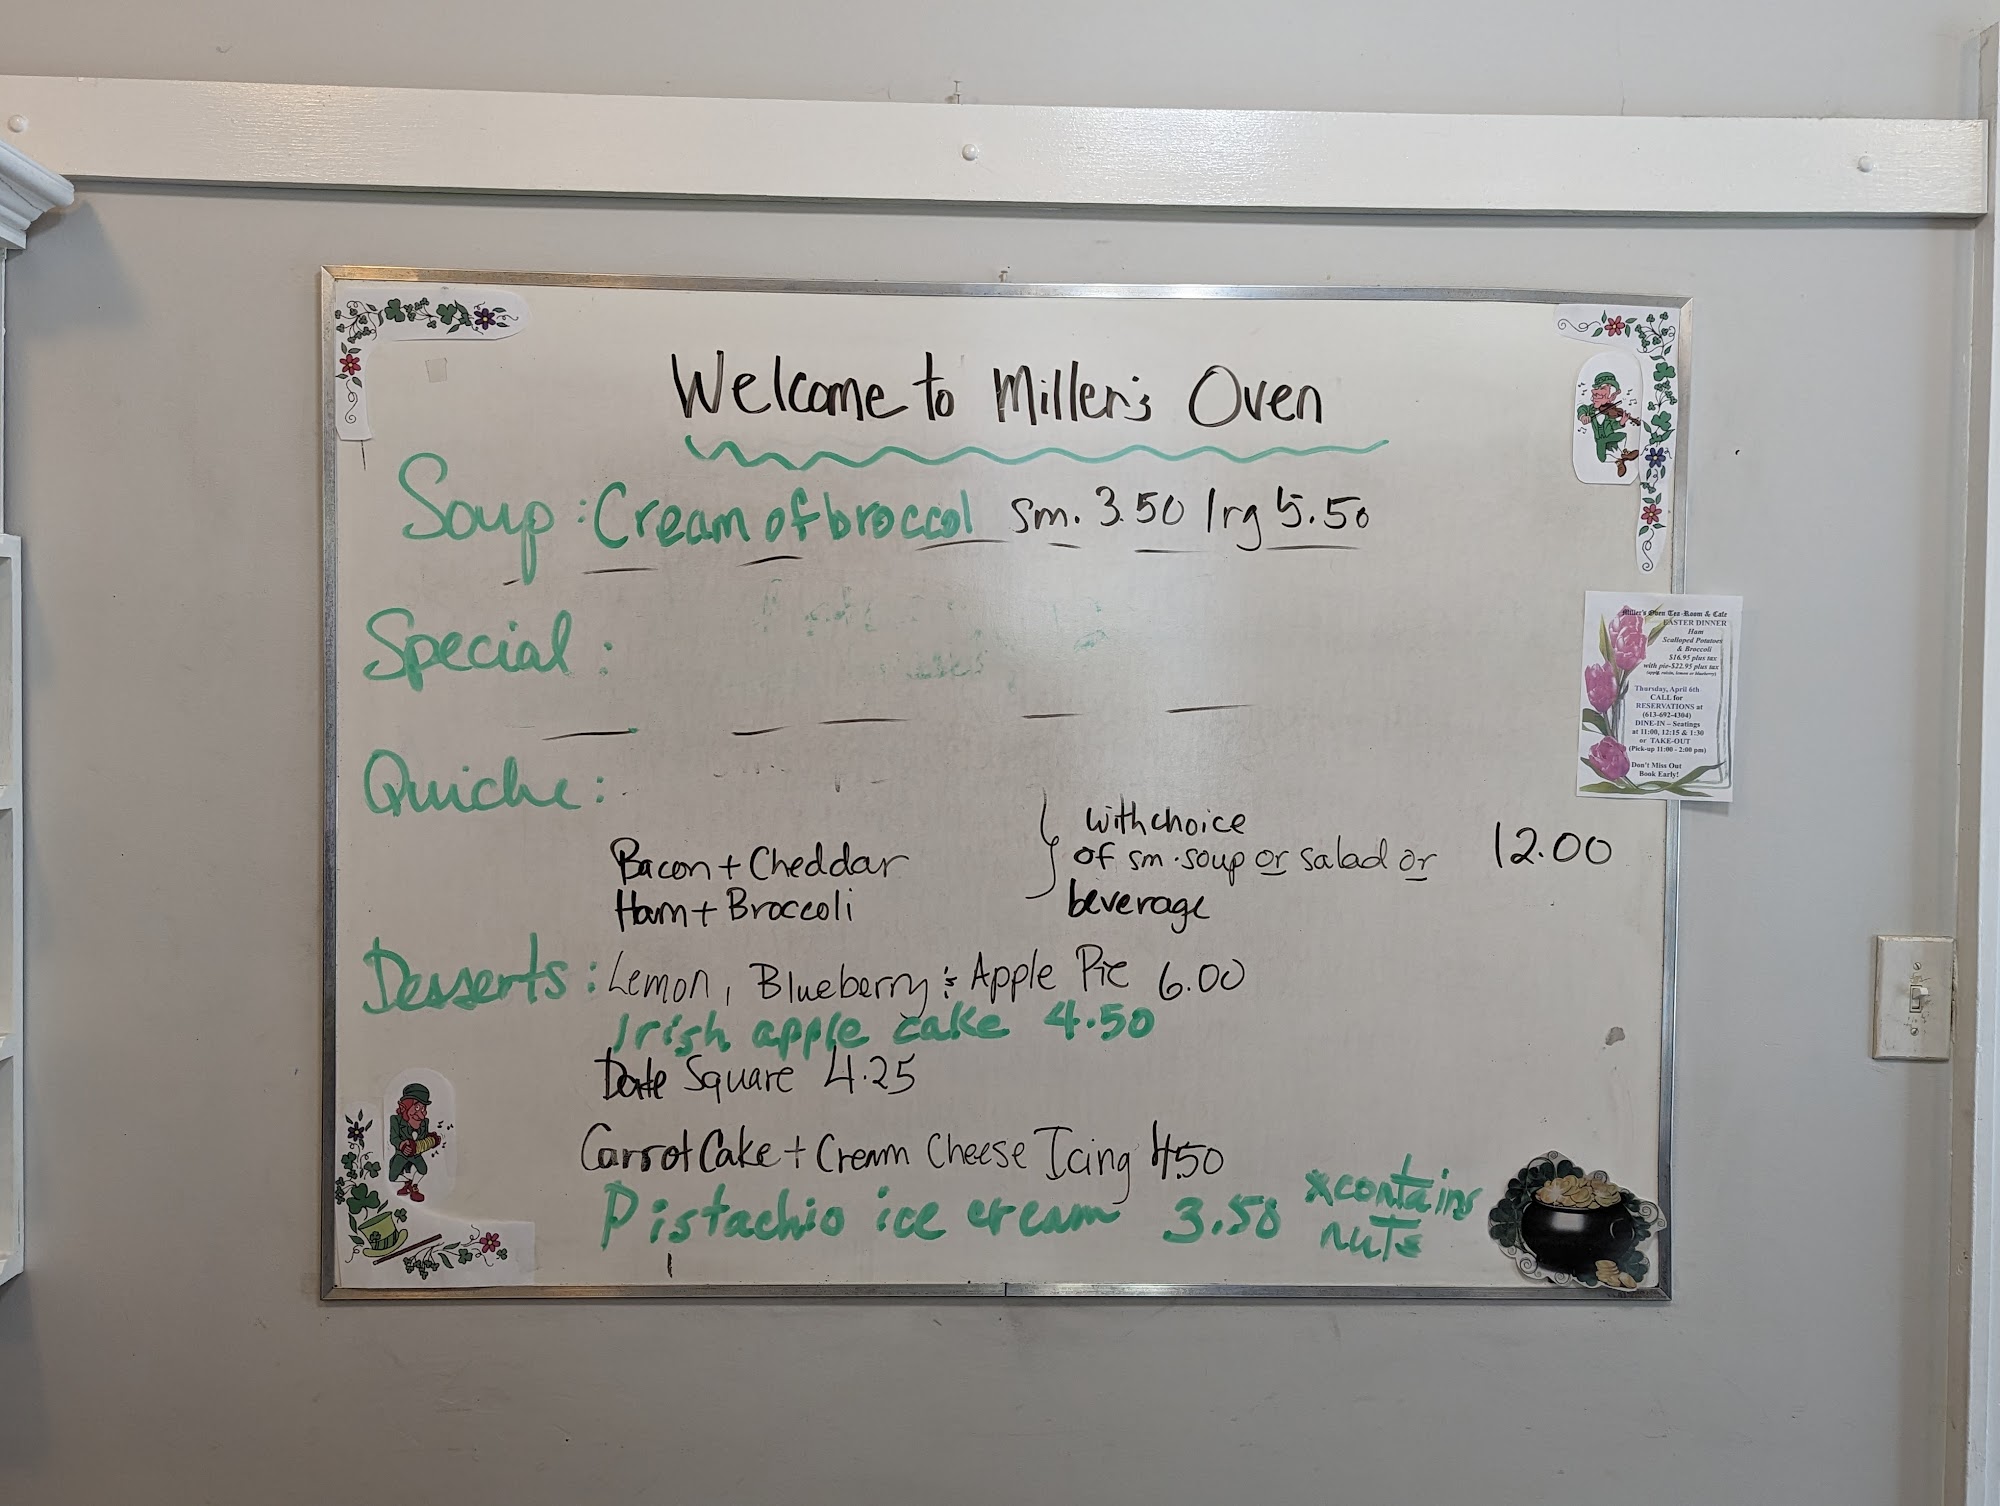 Welcome to Miller's Oven
Soup: Cream of broccol sm. 3.50 lrg 5.50
Special:
Quiche:
Bacon + Cheddar
Ham + Broccoli
with choice
of sm. soup or salad or
beverage
12.00
Desserts: Lemon, Blueberry & Apple Pie 6.00
Irish apple cake 4.50
Date Square 4.25
Carrot Cake + Cream Cheese Icing 4.50
Pistachio ice cream 3.50
*contains
nuts
Miller's Oven Tea-Room & Cafe
EASTER DINNER
Ham
Scalloped Potatoes
& Broccoli
$16.95 plus tax
with pie-$22.95 plus tax
(apple, raisin, lemon or blueberry)
Thursday, April 6th
CALL for
RESERVATIONS at
(613-692-4304)
DINE-IN – Seatings
at 11:00, 12:15 & 1:30
or TAKE-OUT
(Pick-up 11:00 - 2:00 pm)
Don't Miss Out
Book Early!